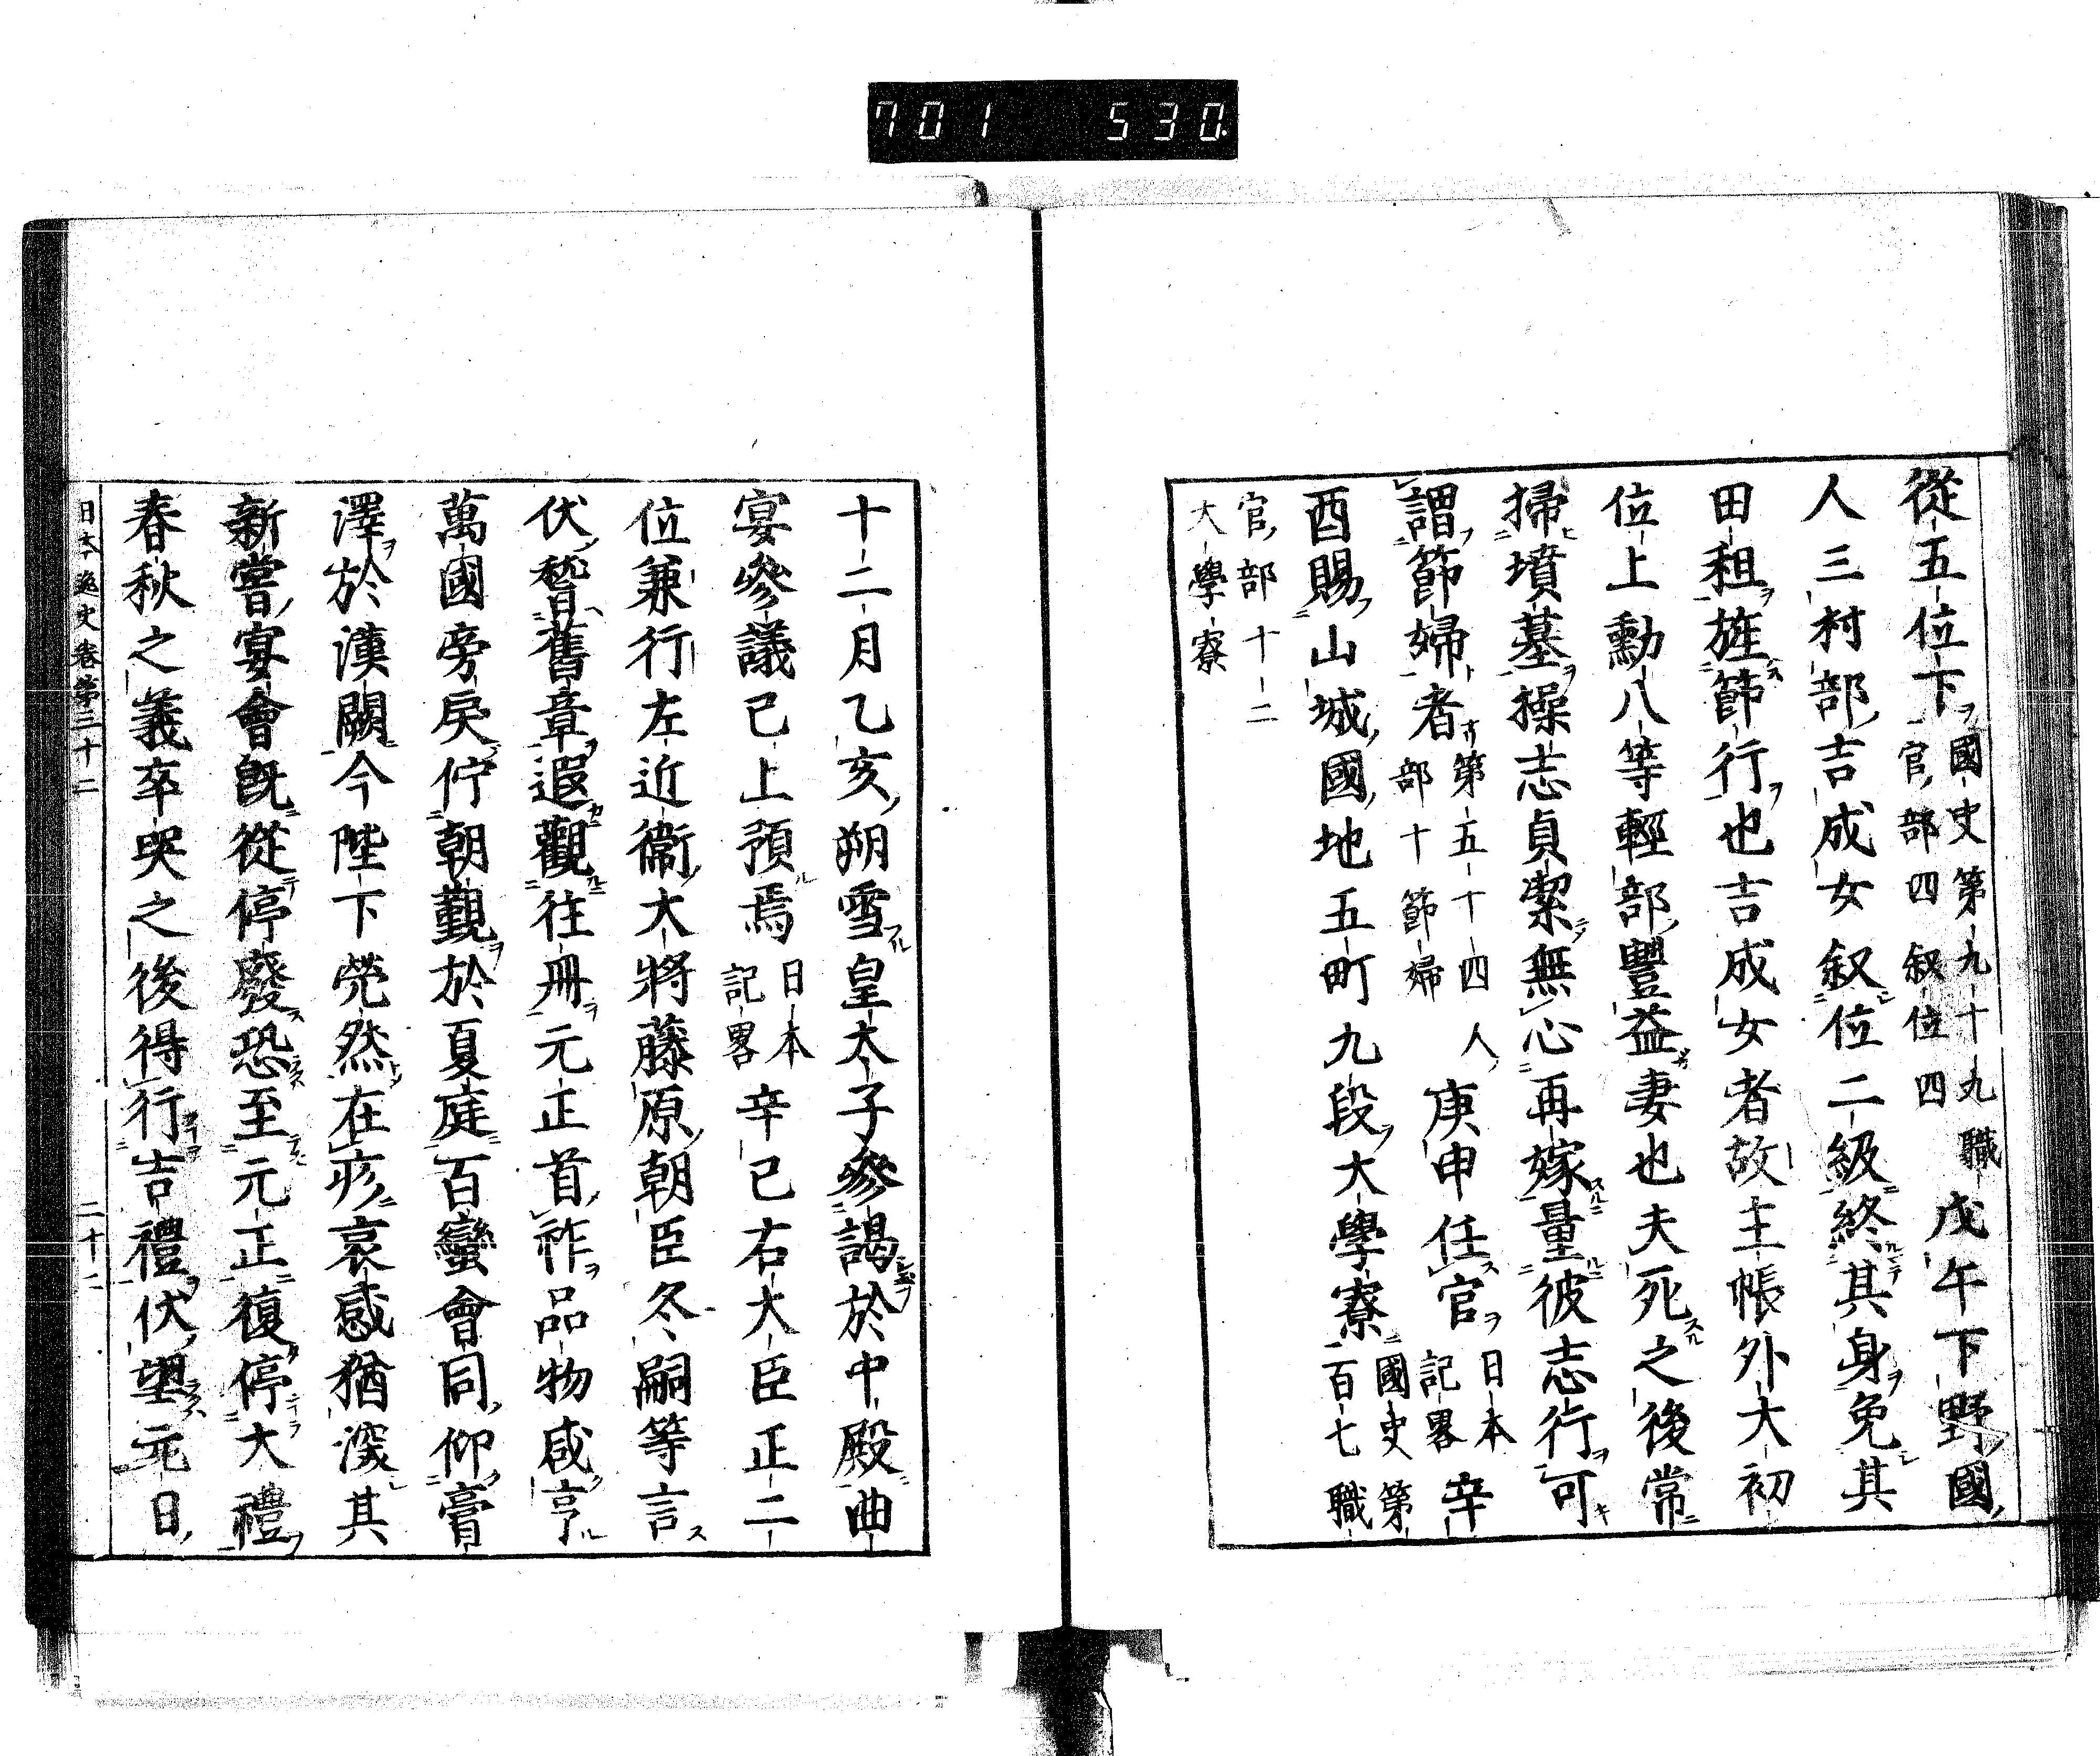 701 530
從五位下國史第九十九職官部四叙位四戊午下野國
人三村部吉成女叙位二級終其身免其
田租旌節行也吉成女者故主帳外大初
位上勳八等輕部豐益妻也夫死之後常
掃墳墓操志貞潔無心再嫁量彼志行可
謂節婦者第五十四人部十節婦庚申任官日本記畧辛
酉賜山城國地五町九段大學寮國史第百七職
官部十二大學寮
十二月乙亥朔雪皇太子參謁於中殿曲
宴參議已上預焉日本記畧辛巳右大臣正二
位兼行左近衞大將藤原朝臣冬嗣等言
伏稽舊章遐觀往冊元正首祚品物咸亨
萬國旁戾佇朝覲於夏庭百蠻會同仰膏
澤於漢闕今陛下煢然在疚哀感猶深其
新嘗宴會旣從停廢恐至元正復停大禮
春秋之義卒哭之後得行吉禮伏望元日
日本逸史卷第三十二 二十二